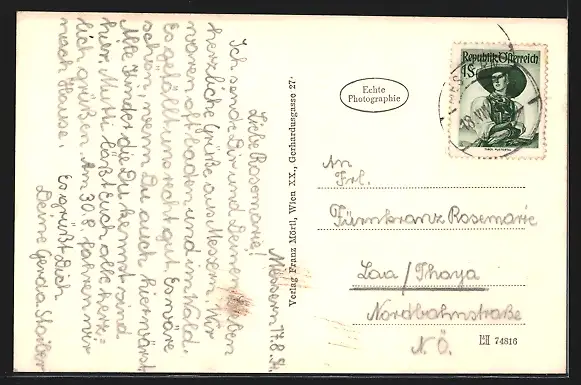 Messern, 17.8.51.
Liebe Rosemarie!
Ich sende Dir und Deinen lieben
herzliche Grüße aus Messern. Wir
waren oft baden und im Wald.
Es gefällt uns recht gut. Es wäre
schön, wenn Du auch hier wärst.
Alle Kinder die Du kennst sind
hier. Mutti läßt Euch alle herz=
lich grüßen. Am 30.8. fahren wir
nach Hause. Es grüßt Dich
Deine Gerda
Verlag Franz Mörtl, Wien XX., Gerhardusgasse 27
Echte
Photographie
Republik Österreich
1S
An
Frl.
Fürnkranz Rosemarie
Laa / Thaya
Nordbahnstraße
N.Ö.
74816